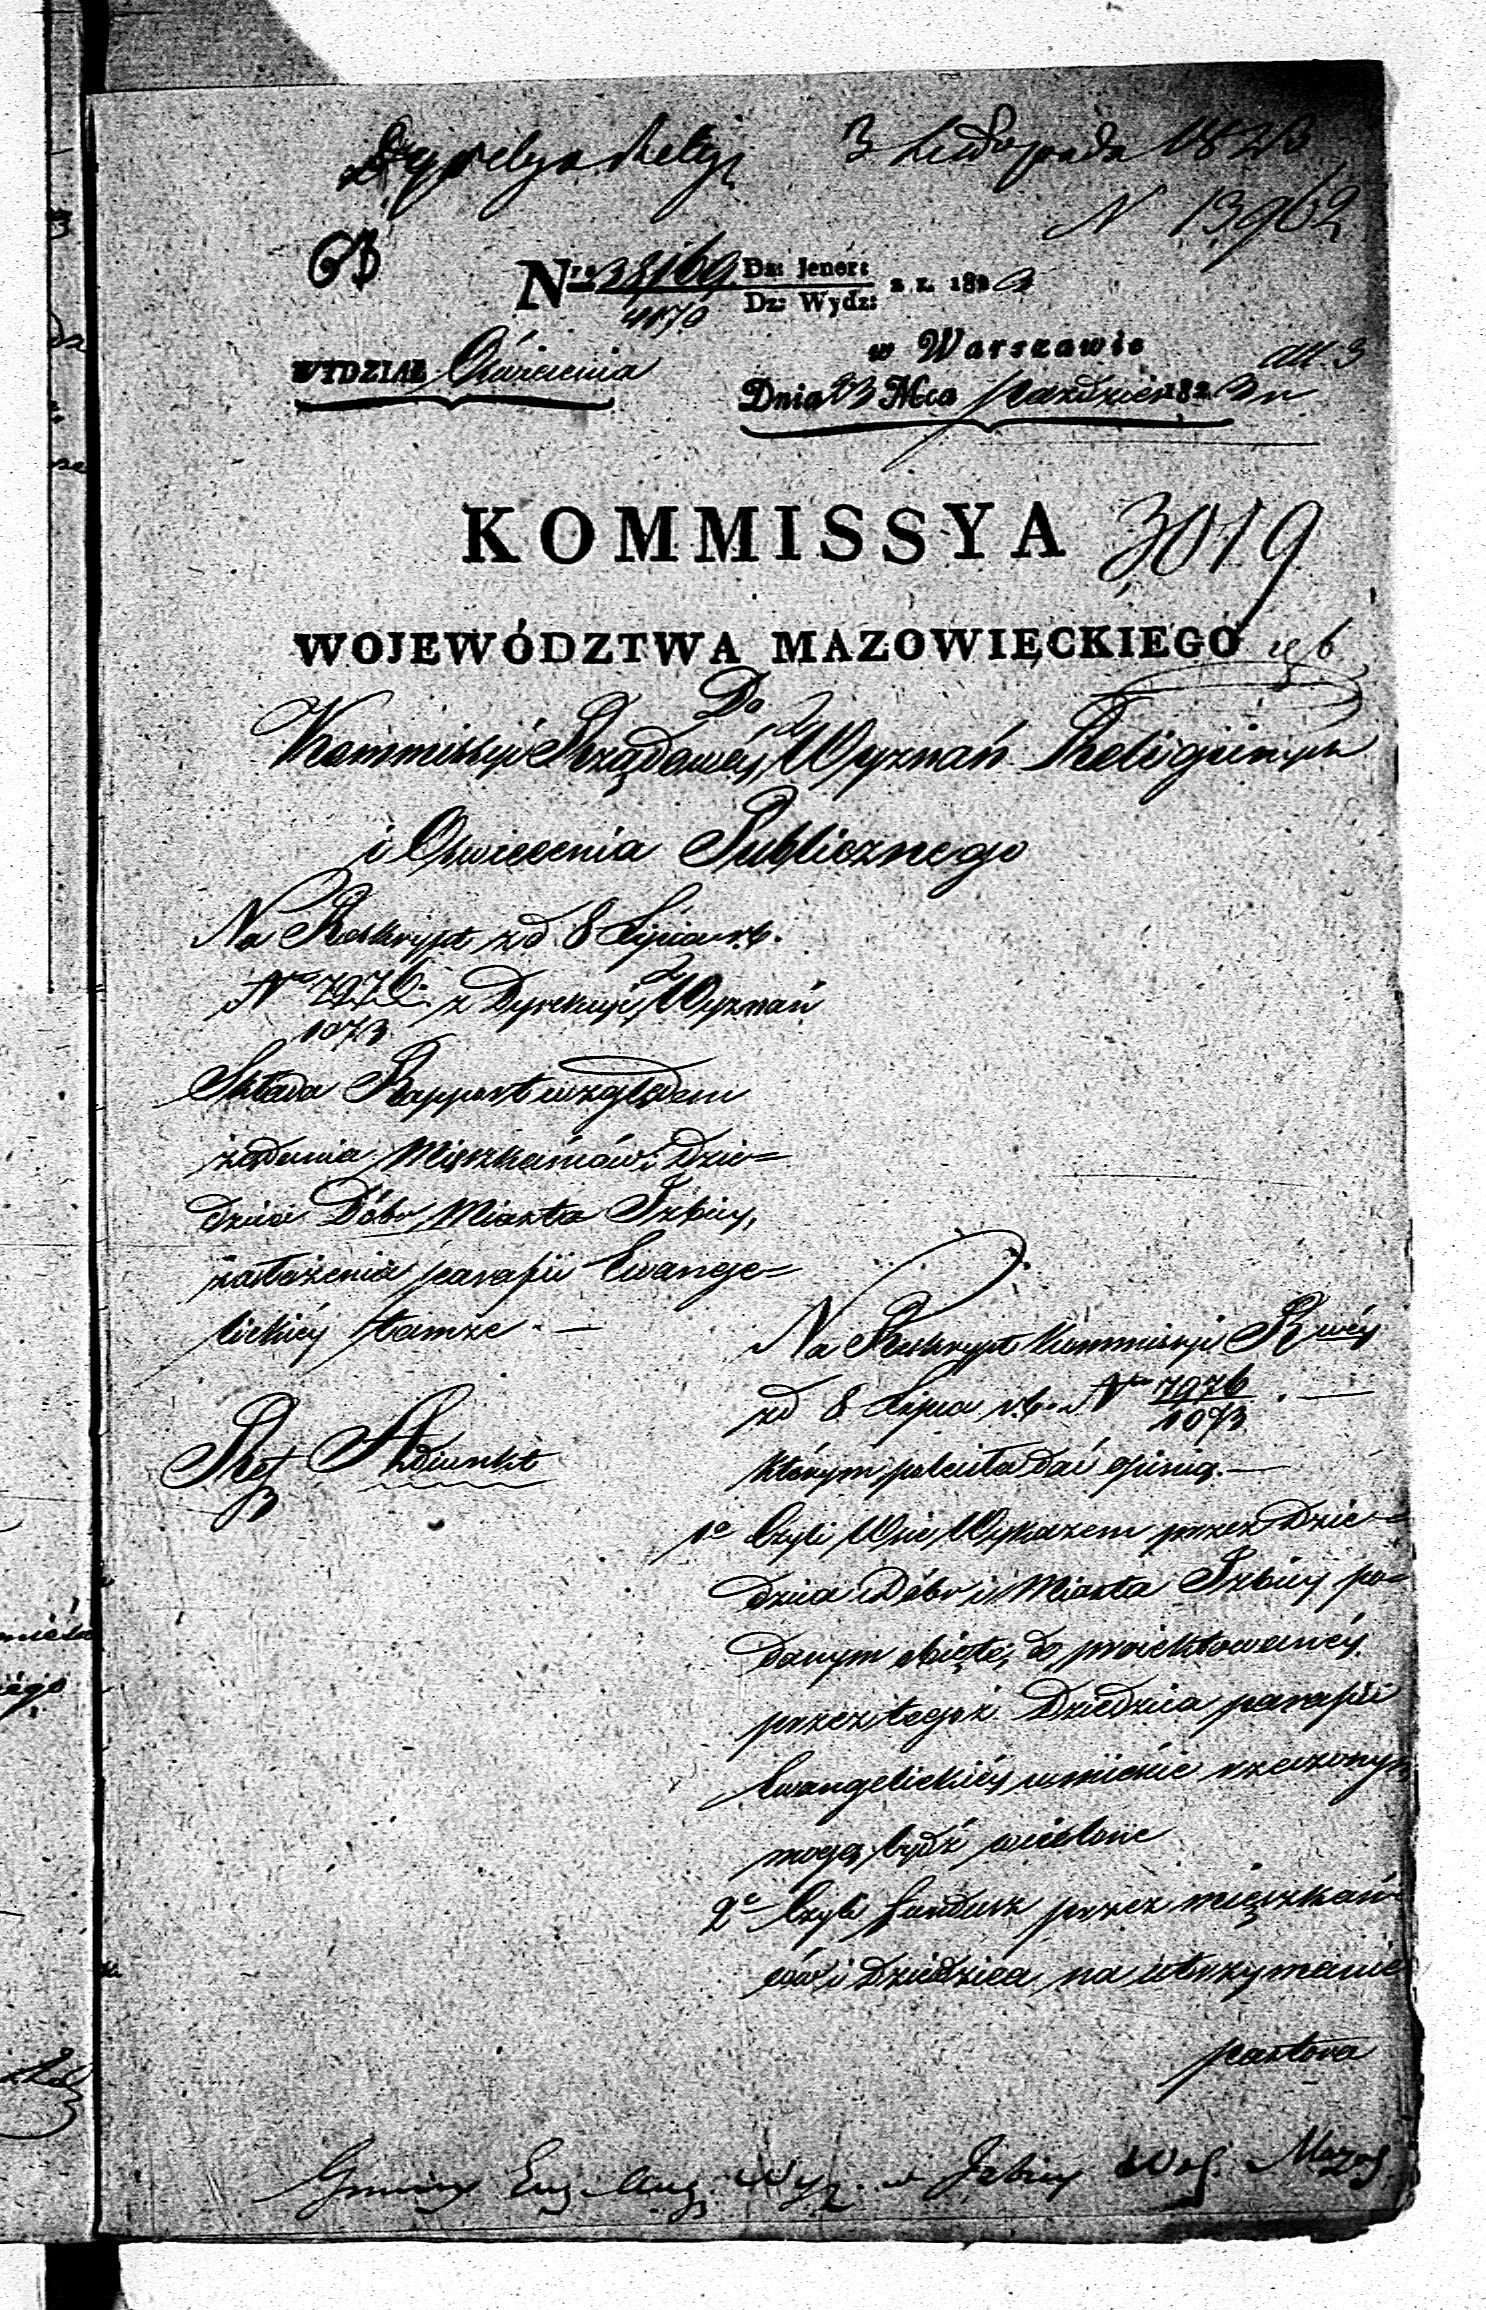 Dyrekcya Religij 3 Listopada 1823
N 13962
Nro 38169. Dz: Jener: z r. 1823
4170 Dz: Wydz:
w Warszawie
WYDZIAŁ Oświecenia
Dnia 23 Mca Paździer 1823 r.
KOMMISSYA 3019
WOJEWÓDZTWA MAZOWIECKIEGO
Do
Kommissyi Rządowéj Wyznań Religijnych
i Oświecenia Publicznego
Na Reskrypt z d. 8 Lipca r.b.
Nro 7976. z Dyrekcyi Wyznań
1073
Składa Rapport względem
żądania Mieszkańców i Dzie=
dzica Dóbr Miasta Izbicy,
założenia parafii Ewange=
lickiéj tamże. —
Ref Adiunkt
Na Reskrypt Kommissyi R wéj
z d 8 Lipca r.b. Nro 7976
1073
którym poleciła dać opinią. —
1o Czyli Wsie Wykazem przez Dzie=
dzica Dóbr i Miasta Izbicy po=
danym objęte, do projektowanéj
przez tegoż Dziedzica parafii
Ewangelickiéj w mieście rzeczonym
mogą bydź wcielone
2o Czyli fundusz przez mieszkań=
ców i Dziedzica na utrzymanie
pastora
Gminy Ewg. Aug. Wyz. w Izbicy Woj. Mazow.